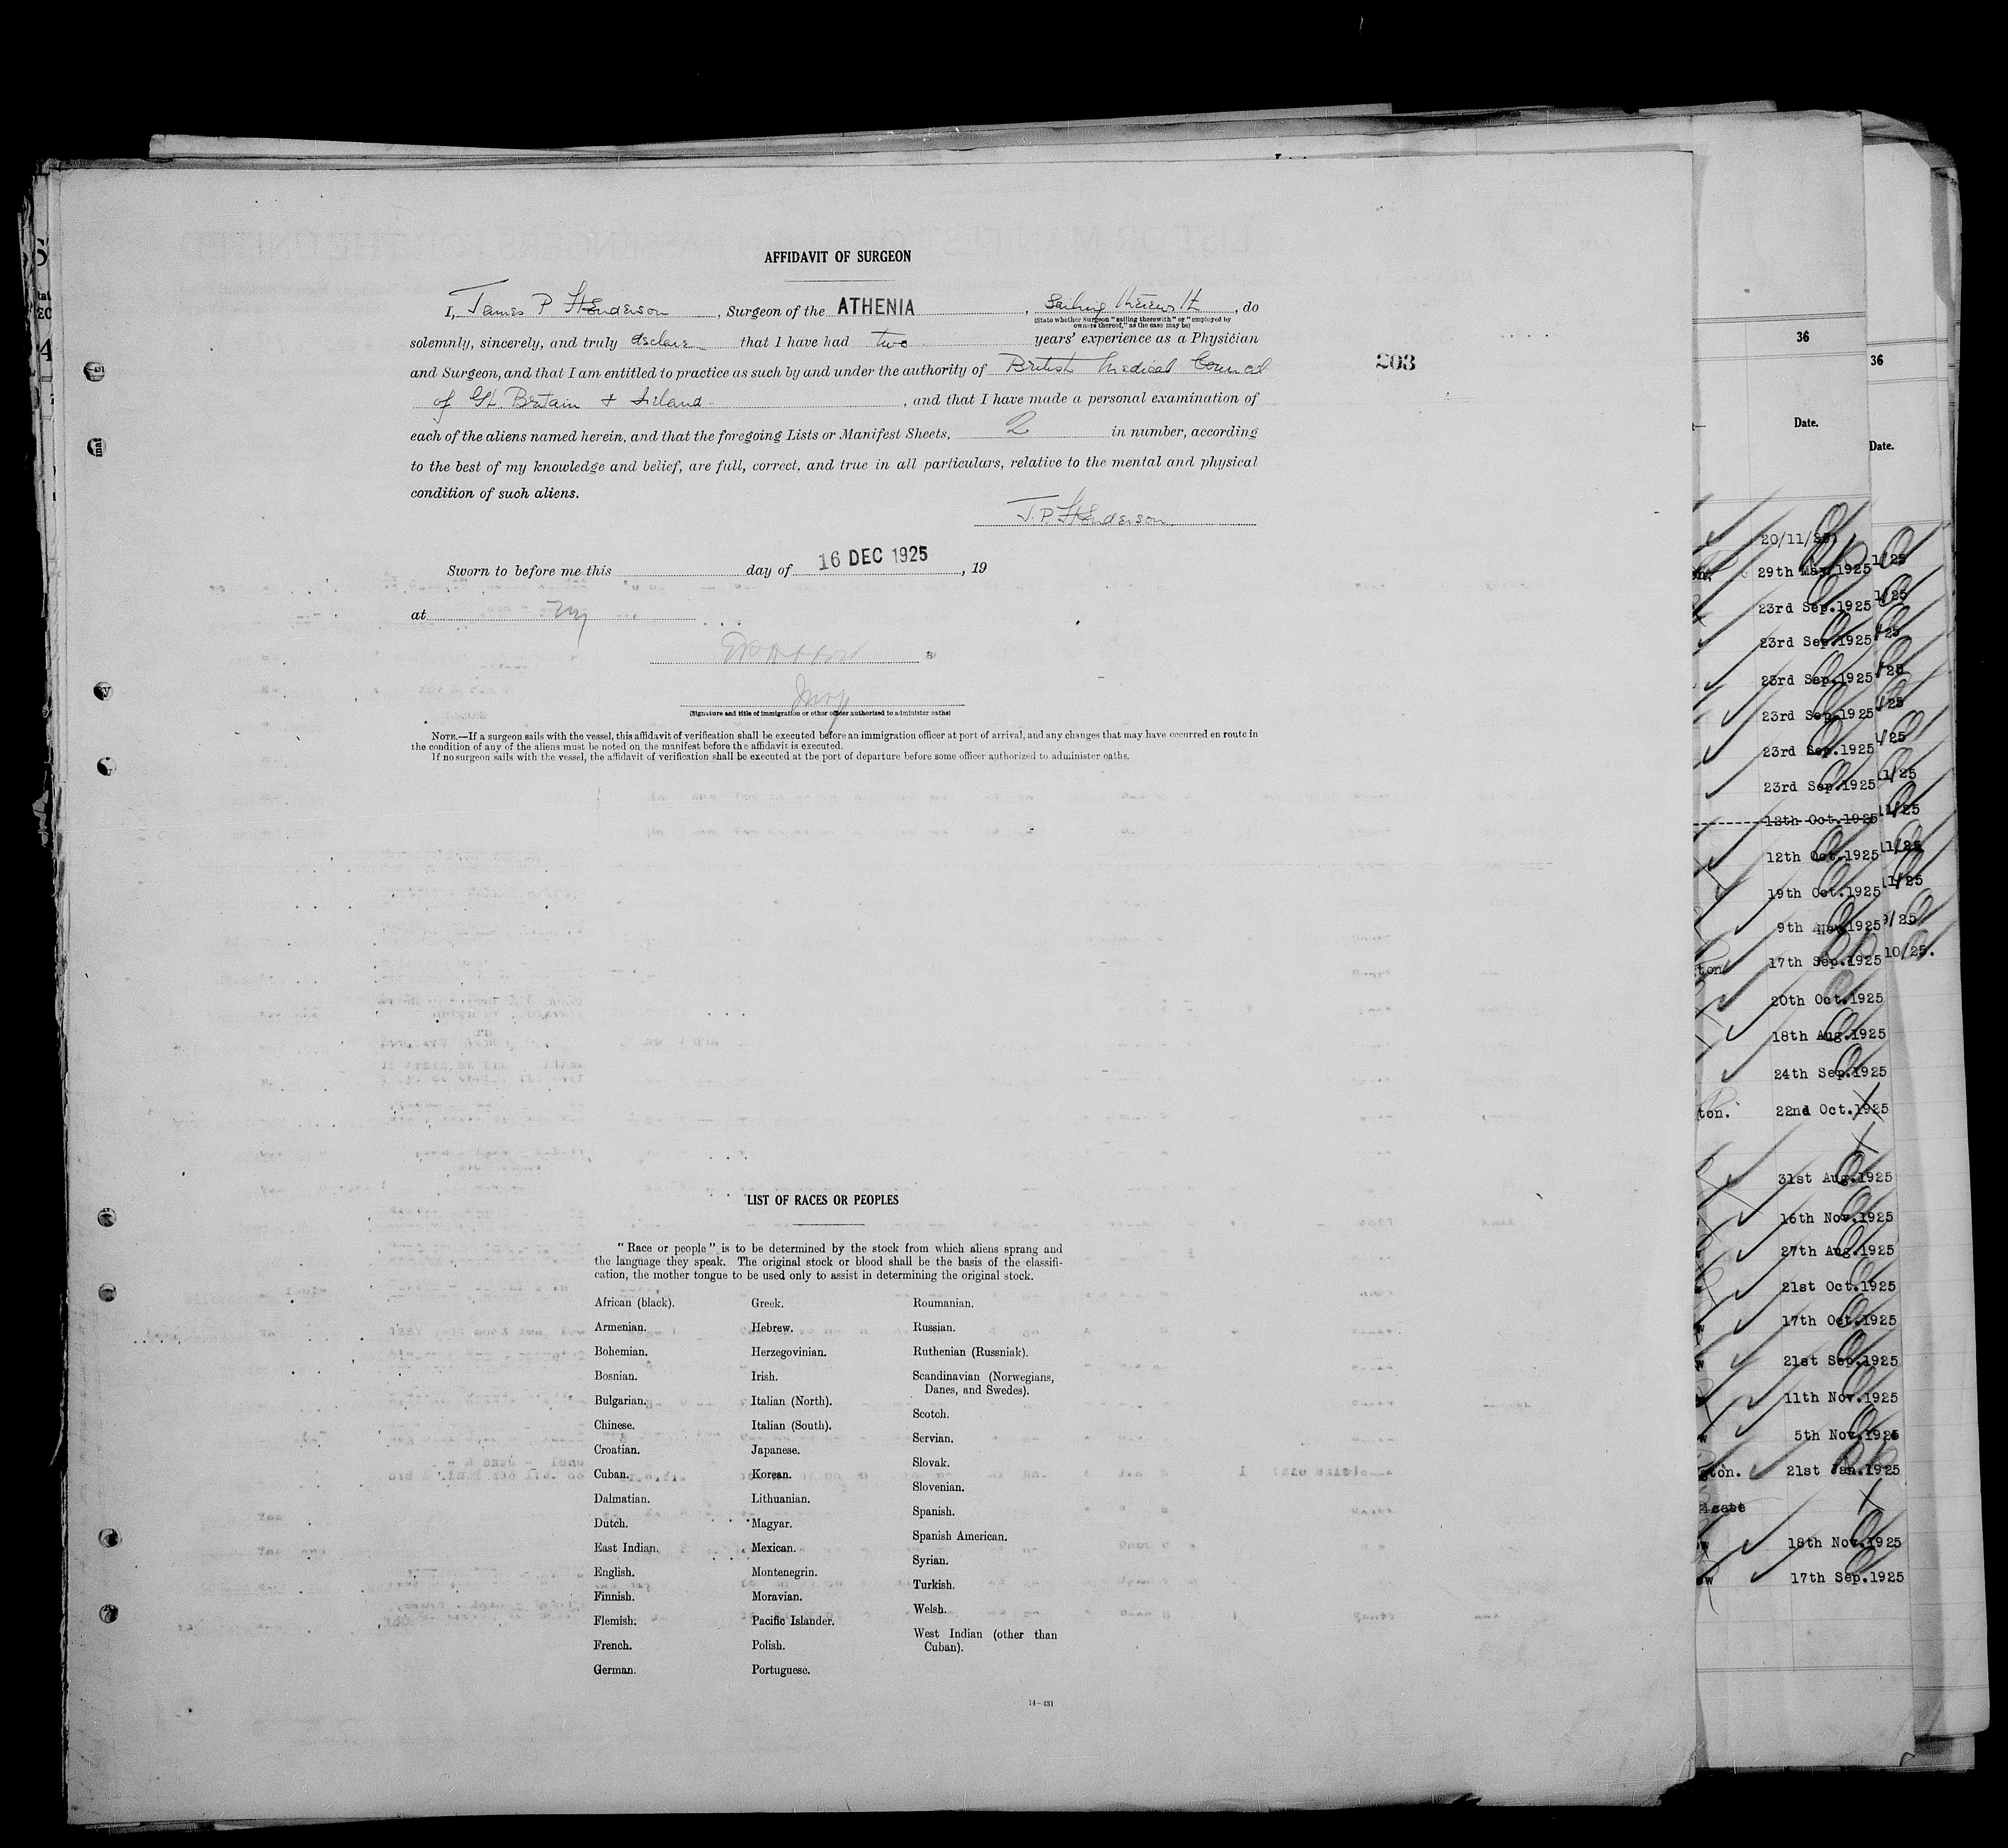 AFFIDAVIT OF SURGEON
I, James P Henderson, Surgeon of the ATHENIA, Sailing therewith, do
(State whether Surgeon "sailing therewith" or "employed by
owners thereof," as the case may be)
solemnly, sincerely, and truly declare that I have had two years' experience as a Physician
203
and Surgeon, and that I am entitled to practice as such by and under the authority of British Medical Council
of Gt. Britain + Ireland, and that I have made a personal examination of
each of the aliens named herein, and that the foregoing Lists or Manifest Sheets, 2 in number, according
to the best of my knowledge and belief, are full, correct, and true in all particulars, relative to the mental and physical
condition of such aliens.
J. P. Henderson
Sworn to before me this day of 16 DEC 1925, 19
at NY
Insp
(Signature and title of immigration or other officer authorized to administer oaths)
NOTE.—If a surgeon sails with the vessel, this affidavit of verification shall be executed before an immigration officer at port of arrival, and any changes that may have occurred en route in
the condition of any of the aliens must be noted on the manifest before the affidavit is executed.
If no surgeon sails with the vessel, the affidavit of verification shall be executed at the port of departure before some officer authorized to administer oaths.
LIST OF RACES OR PEOPLES
"Race or people" is to be determined by the stock from which aliens sprang and
the language they speak. The original stock or blood shall be the basis of the classifi-
cation, the mother tongue to be used only to assist in determining the original stock.
African (black).
Armenian.
Bohemian.
Bosnian.
Bulgarian.
Chinese.
Croatian.
Cuban.
Dalmatian.
Dutch.
East Indian.
English.
Finnish.
Flemish.
French.
German.
Greek.
Hebrew.
Herzegovinian.
Irish.
Italian (North).
Italian (South).
Japanese.
Korean.
Lithuanian.
Magyar.
Mexican.
Montenegrin.
Moravian.
Pacific Islander.
Polish.
Portuguese.
Roumanian.
Russian.
Ruthenian (Russniak).
Scandinavian (Norwegians,
Danes, and Swedes).
Scotch.
Servian.
Slovak.
Slovenian.
Spanish.
Spanish American.
Syrian.
Turkish.
Welsh.
West Indian (other than
Cuban).
14—431
36
Date.
20/11/25
29th May 1925
23rd Sep.1925
23rd Sep.1925
23rd Sep.1925
23rd Sep.1925
23rd Sep.1925
23rd Sep.1925
12th Oct.1925
12th Oct.1925
19th Oct.1925
9th Nov.1925
ton 17th Sep.1925
20th Oct.1925
18th Aug.1925
24th Sep.1925
ton. 22nd Oct.1925
31st Aug.1925
16th Nov.1925
27th Aug.1925
21st Oct.1925
17th Oct.1925
21st Sep.1925
11th Nov.1925
5th Nov.1925
gton. 21st Jan.1925
18th Nov.1925
ow 17th Sep.1925
36
Date.
1/25
1/25
/25
/25
/25
1/25
1/25
11/25
11/25
11/25
9/25
10/25.